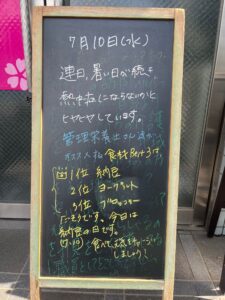 7月10日(水)
連日、暑い日が続き
熱中症にならないかと
ヒヤヒヤしています。
管理栄養士さん
オススメの食材
1位 納豆
2位 ヨーグルト
3位 ブロッコリー
だそうです。今日は
納豆の日です。
(7/10) 食べて
しましょう!